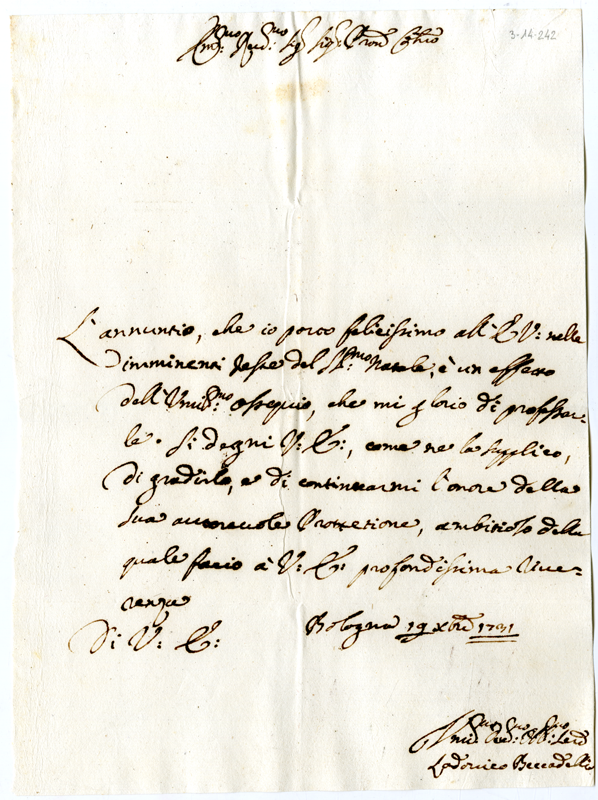 Em:mo Rev:mo Sig: Sig: Pron
3-14-242
L'annuntio, che io porto felicissimo all'E V: nelle
imminenti feste del SS:mo Natale, è un effetto
dell'Umil:mo ossequio, che mi glorio di professar=
le. Si degni V: E:, come ne la supplico,
di gradirlo, e di continuarmi l'onore della
sua autorevole Protezione, ambitioso della
quale facio à V: E: profondissima river=
renza
Di V: E: Bologna 19 Xbre 1731
Lodovico Beccadelli